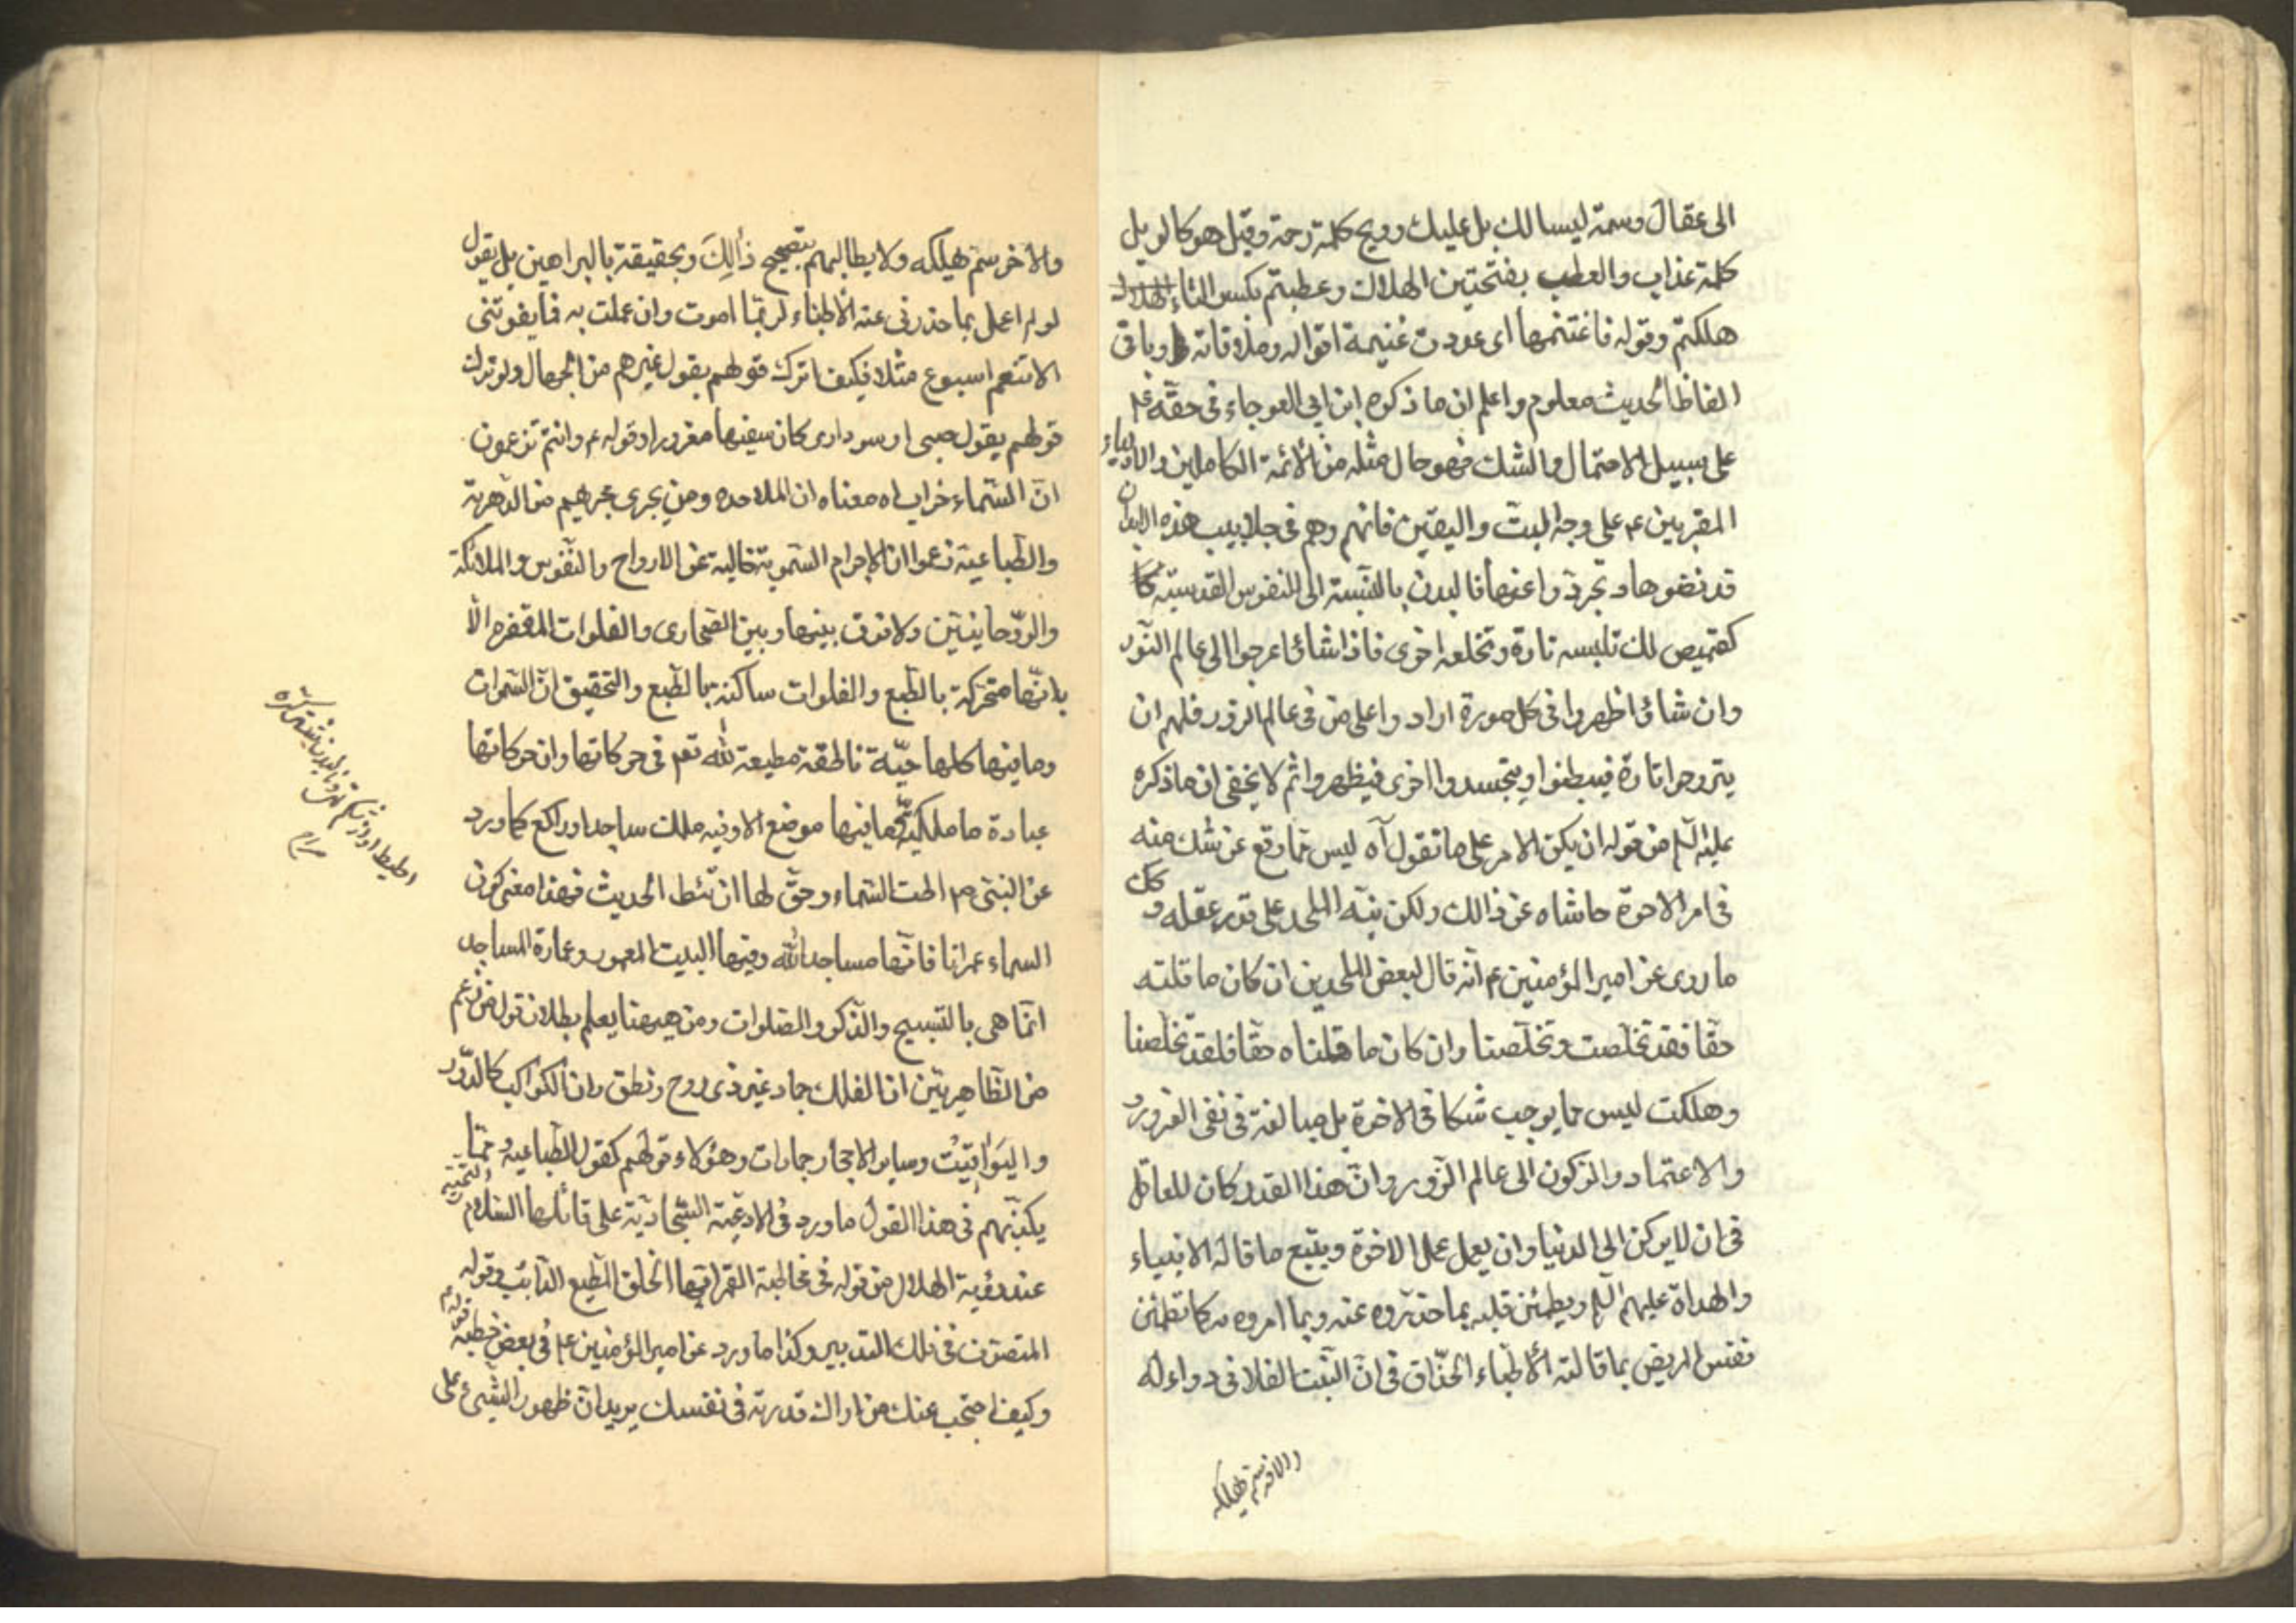 الى عقال وسمة ليسا لك بل عليك وويح كلمة رحمة وقيل هو كالويل
كلمة عذاب والعطب بفتحتين الهلاك وعطبتم بكسر الطاء
هلكتم وقوله فاغتنمها اى عددت غنيمة اقواله وملاقاته وباقى
الفاظ الحديث معلوم واعلم ان ما ذكره ابن ابى العوجاء فى حقه ع
على سبيل الاحتمال والشك فهو حال مثله من الائمة الكاملين والاولياء
المقربين ع على وجه البت واليقين فانهم وهم فى جلابيب هذه الابدان
قد نضوها وتجردوا عنها فالبدن بالنسبة الى النفوس القدسية
كقميص لك تلبسه تارة وتخلعه اخرى فاذا شاؤا عرجوا الى عالم النور
وان شاؤا ظهروا فى كل صورة ارادوا على من فى عالم الزور فلهم ان
يتروحوا تارة فيبطنوا ويتجسدوا اخرى فيظهروا ثم لا يخفى ان ما ذكره
عليه السلم من قوله ان يكن الامر على ما تقول آه ليس مما وقع عن شك منه
فى امر الاخرة حاشاه عن ذالك ولكن ينبه الملحد على قدر عقله وكك
ما روى عن امير المؤمنين ع انه قال لبعض الملحدين ان كان ما قلته
حقا فقد تخلصت وتخلصنا وان كان ما قلناه حقا فلقد تخلصنا
وهلكت ليس مما يوجب شكا فى الاخرة بل مبالغة فى نفى الغرور
والاعتماد والركون الى عالم الزور وان هذا القدر كان للعاقل
فى ان لا يركن الى الدنيا وان يعمل عمل الاخرة ويتبع ما قاله الانبياء
والهداة عليهم السلم ويطمئن قلبه بما حذروه عنه وبما امروه به كما تطمئن
نفس المريض بما قالته الاطباء الحذاق فى ان النبت الفلانى دواء له
والاخر سم يهلكه
والاخر سم يهلكه ولا يطالبهم بتصحيح ذالك وبحقيقته بالبراهين بل يقول
لو لم اعمل بما حذرنى عنه الاطباء لربما اموت وان عملت به فما يفوتنى
الا تنعم اسبوع مثلا فكيف اترك قولهم بقول غيرهم من الجهال ولو ترك
قولهم بقول صبى او سوادى كان سفيها مغرورا وقوله ع وانتم تزعمون
ان السماء خراب اه معناه ان الملاحده ومن يجرى مجريهم من الدهرية
والطباعية زعموا ان الاجرام السموية خالية عن الارواح والنفوس والملائكة
والروحانيين ولا فرق بينها وبين الصحارى والفلوات المقفره الا
بانها متحركة بالطبع والفلوات ساكنة بالطبع والتحقيق ان السموات
وما فيها كلها حية ناطقة مطيعة لله تعم فى حركاتها وان حركاتها
عبادة ما ملكية ما فيها موضع الا وفيه ملك ساجد او راكع كما ورد
عن النبى ص اطت السماء وحق لها ان تئط الحديث فهذا معنى كون
السماء عمرانا فانها مساجد الله وفيها البيت المعمور وعمارة المساجد
انما هى بالتسبيح والذكر والصلوات ومن هيهنا يعلم بطلان قول من زعم
من الظاهريين ان الفلك جماد غير ذى روح ونطق وان الكواكب كالدرر
واليواقيت وساير الاحجار جمادات وهؤلاء قولهم كقول الطباعية ومما
يكذبهم فى هذا القول ما ورد فى الادعية السجادية على قائلها السلام والتحية
عند رؤية الهلال من قوله فى مخاطبة القمر ايها الخلق المطيع الدائب وقوله
المتصرف فى فلك التدبير وكذا ما ورد عن امير المؤمنين ع فى بعض خطبه قوله ع
وكيف احتجب عنك من اراك قدرته فى نفسك يريد ان ظهور الشيئ على